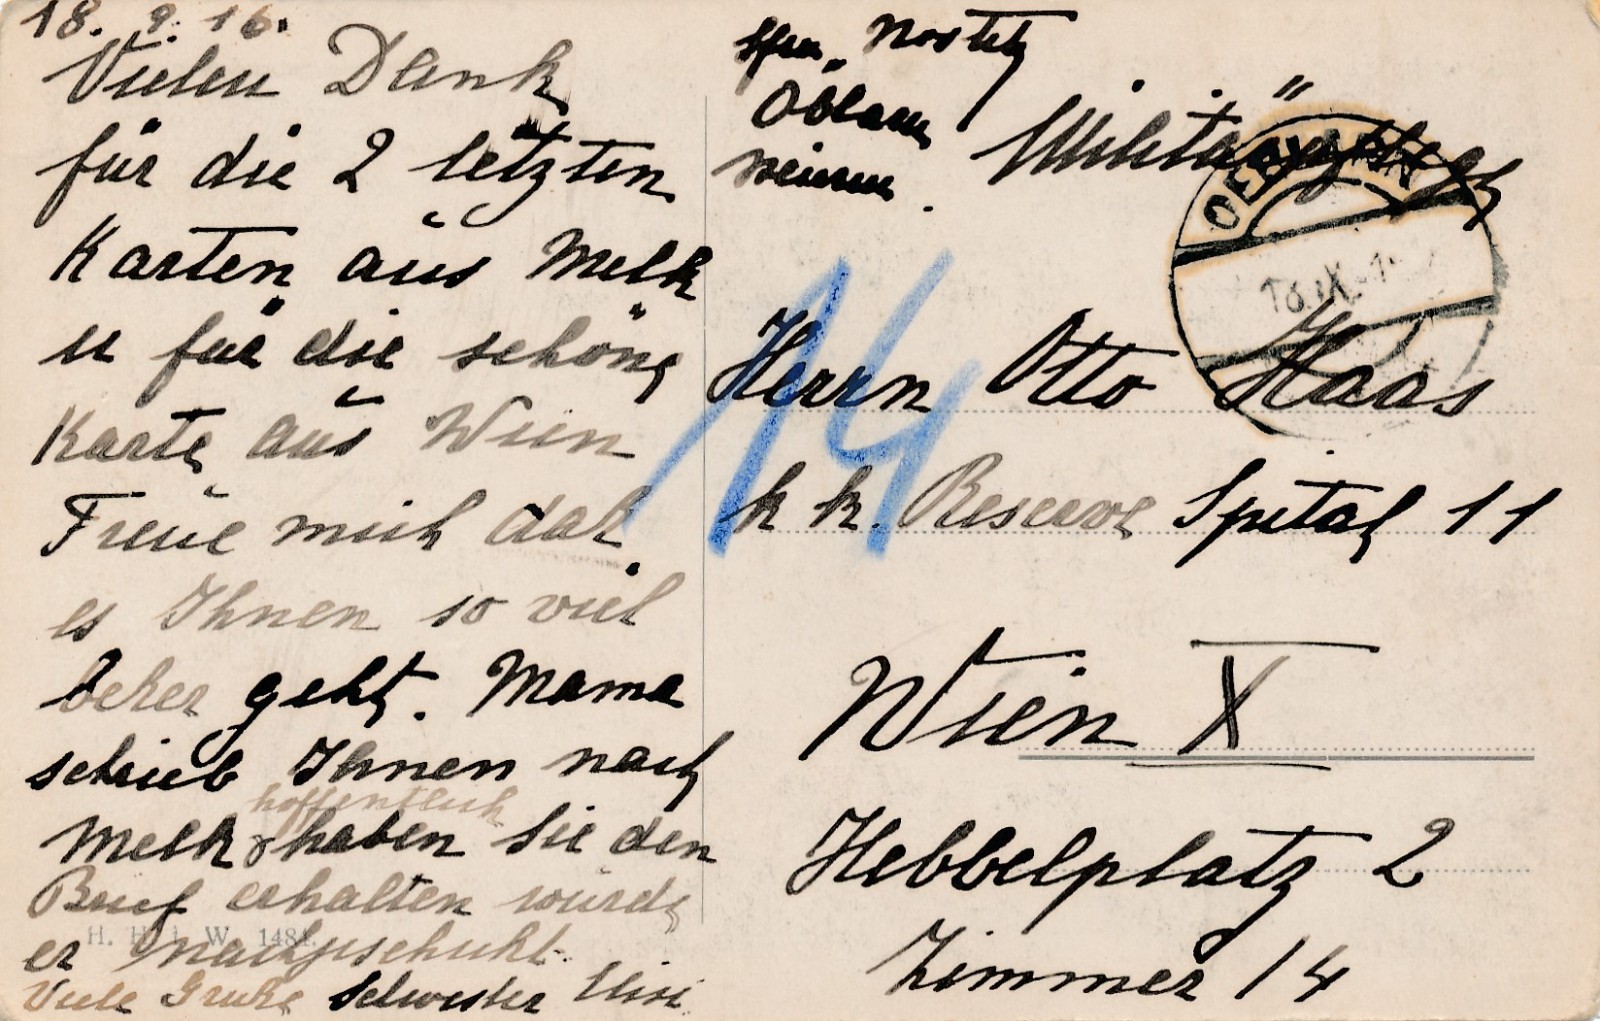 18. 9. 16.
Vielen Dank
für die 2 letzten
Karten aus Melk
u für die schöne
Karte aus Wien
Freue mich daß
es Ihnen so viel
beßer geht. Mama
schrieb Ihnen nach
hoffentlich
Melk & haben Sie den
Brief erhalten wurde
er nachgeschickt.
Viele Grüße Schwester Elisi
H. H. i. W. 1484.
Nostitz
Militärpflege
14
Herrn Otto Haas
k k. Reserve Spital 11
Wien X
Hebbelplatz 2
Zimmer 14